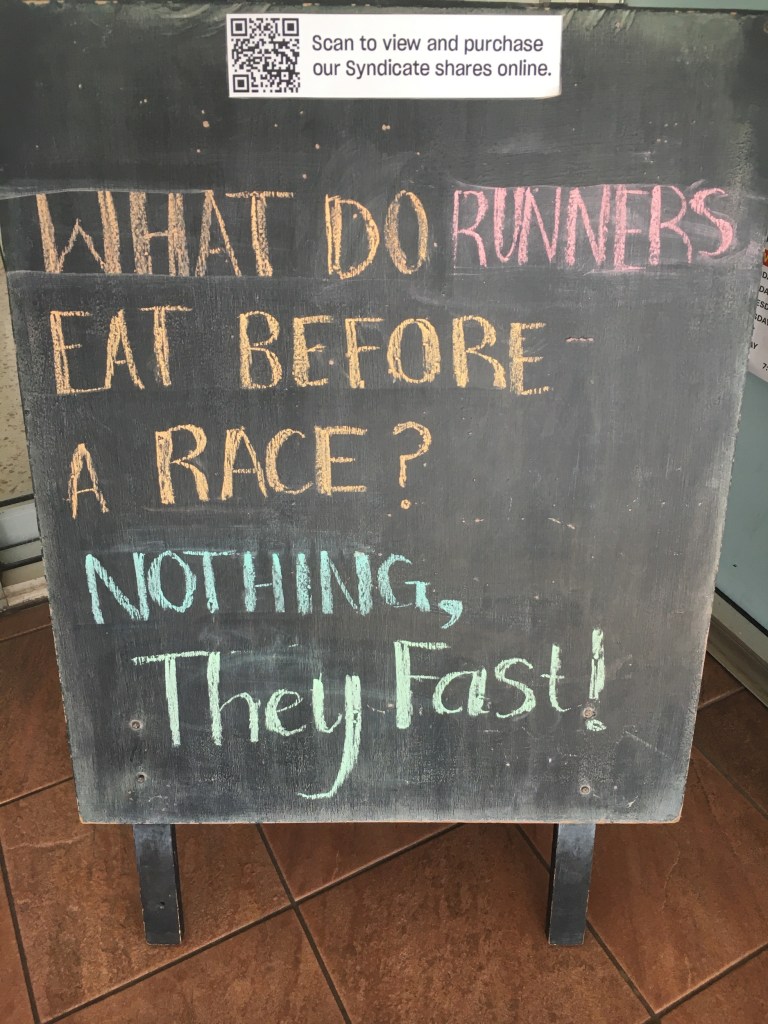 Scan to view and purchase
our Syndicate shares online.
WHAT DO RUNNERS
EAT BEFORE
A RACE?
NOTHING,
They Fast!